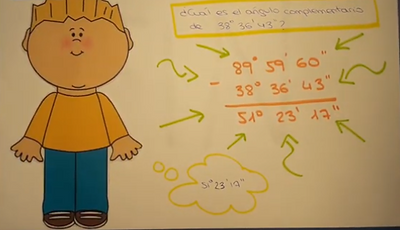 ¿Cual es el angulo complementario
de 38° 36' 43"?
89° 59' 60"
- 38° 36' 43"
51° 23' 17"
51° 23' 17"